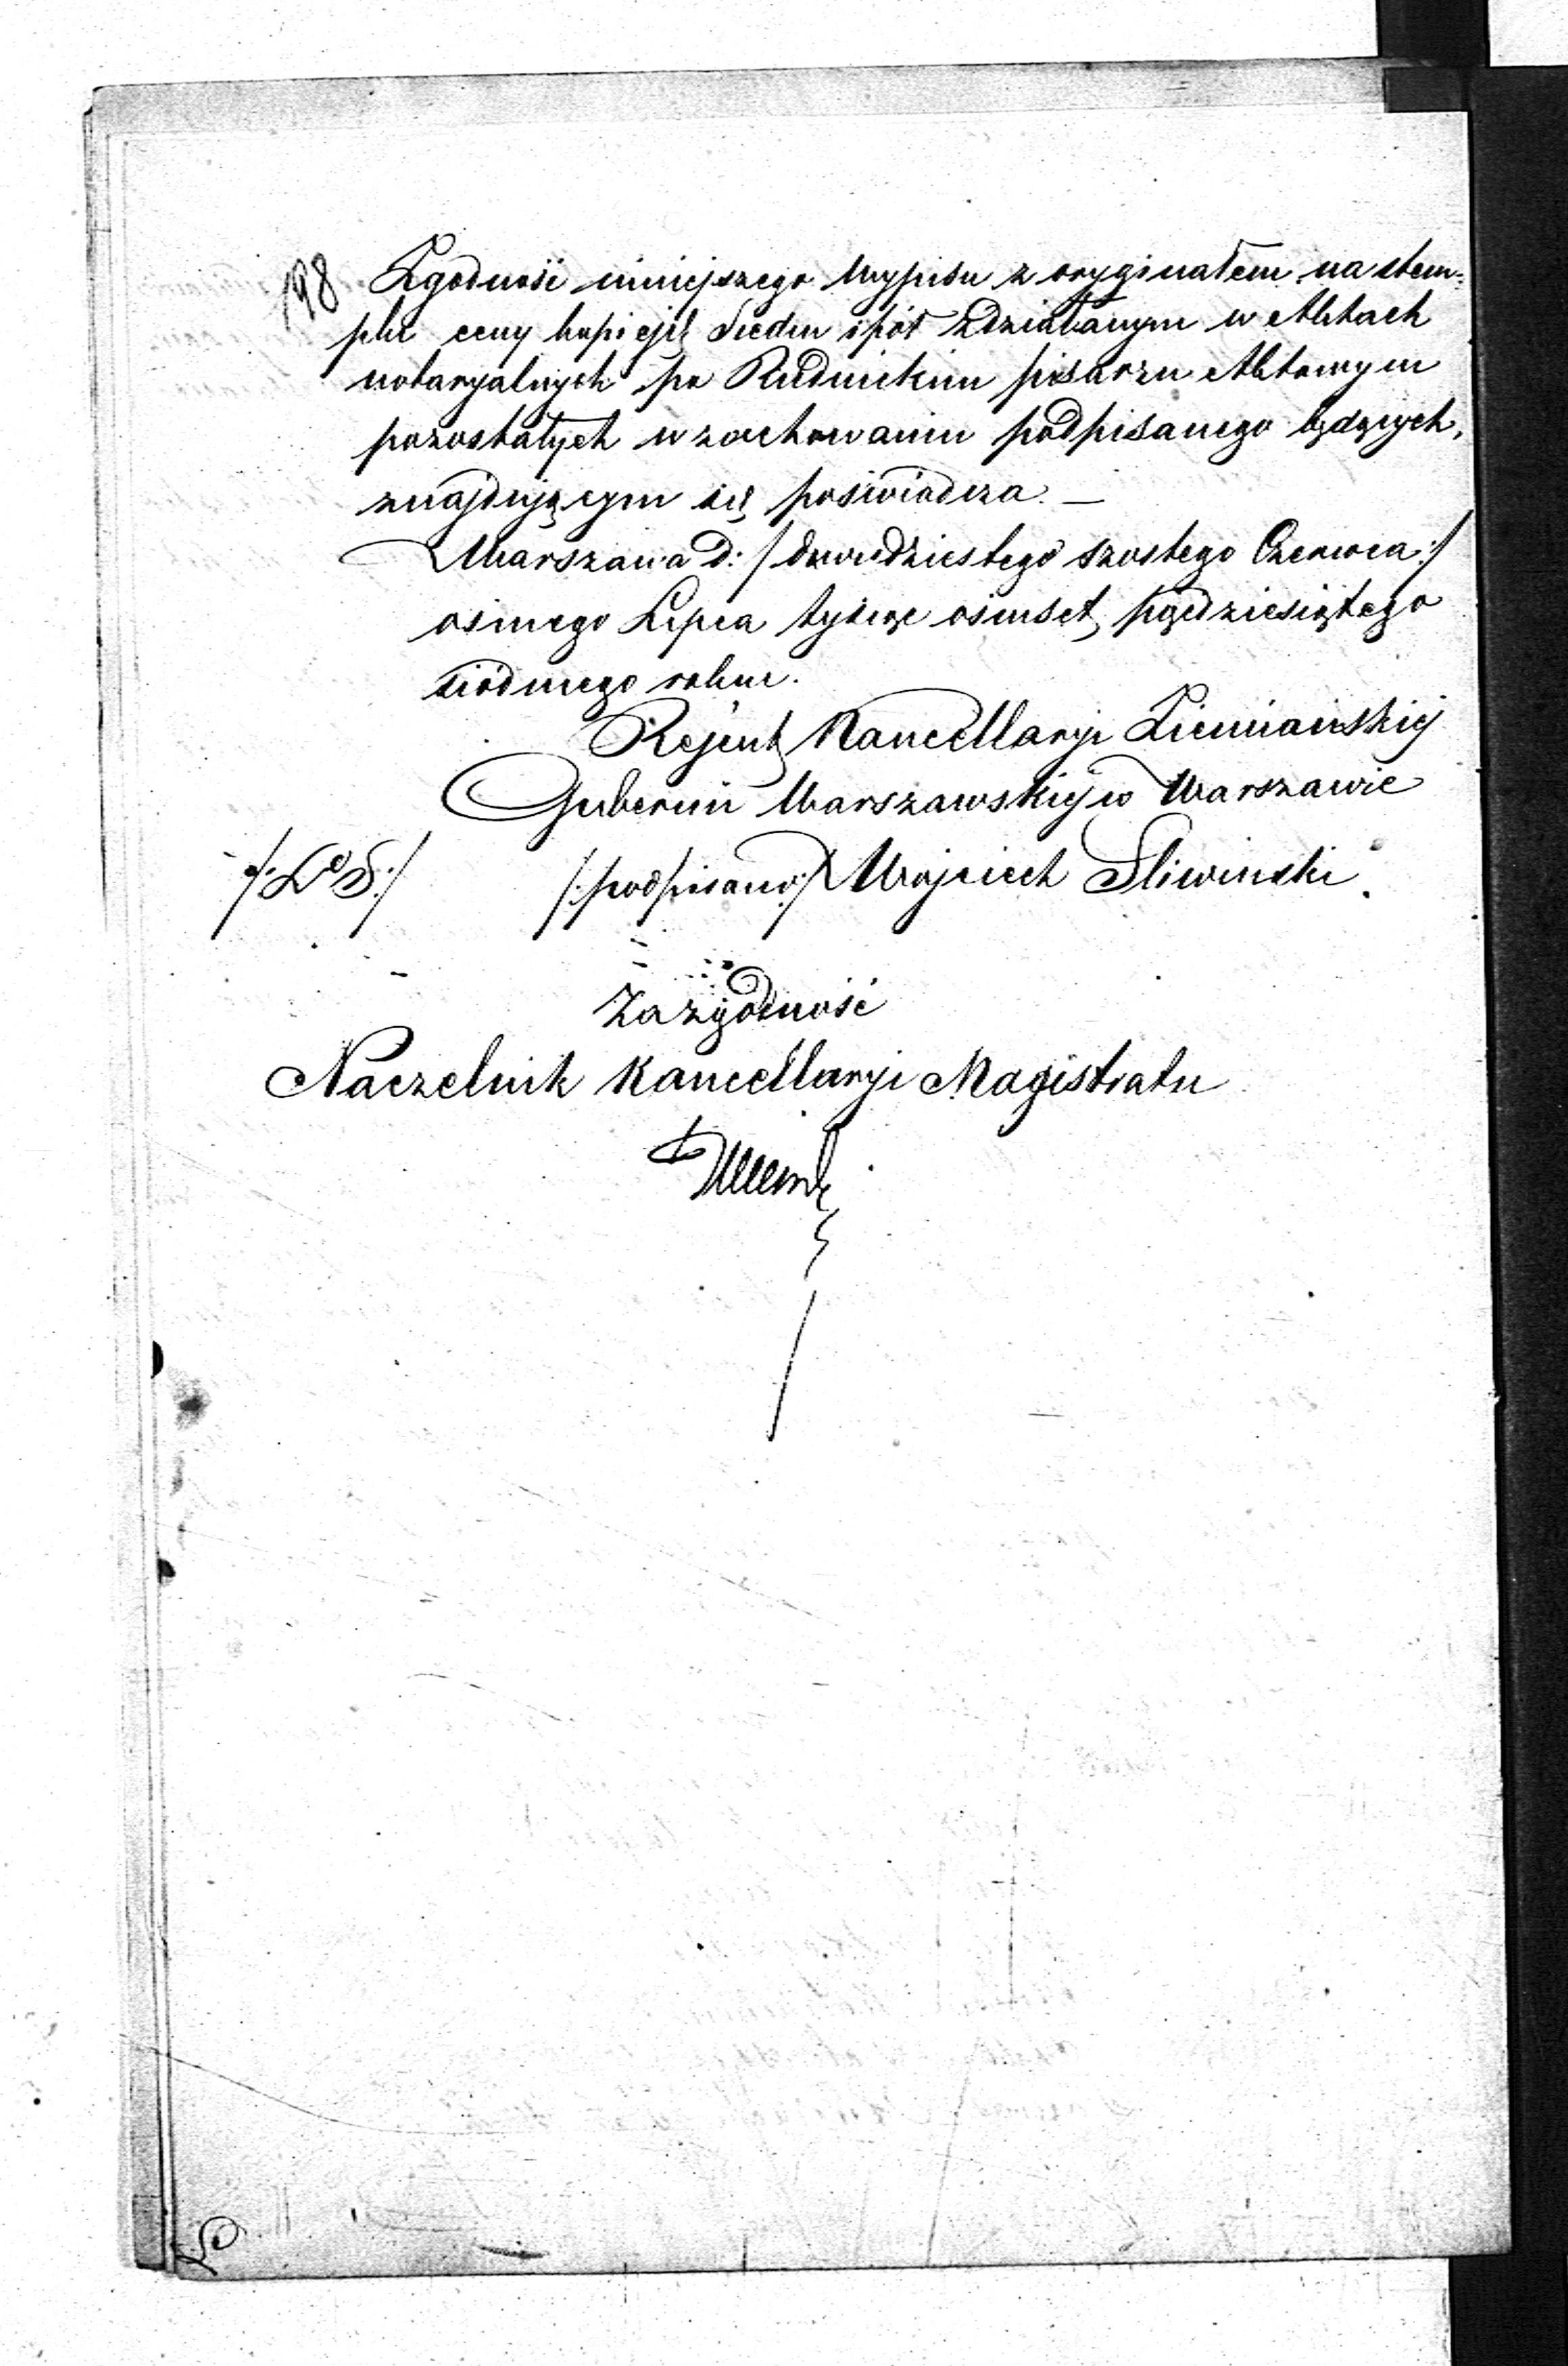 198 Zgodność niniejszego Wypisu z oryginałem na stem=
plu ceny kopiejk Siedm i pół zdziałanym w Aktach
notaryalnych po Rudnickim pisarzu Aktowym
pozostałych w zachowaniu podpisanego będących,
znajdującym się poświadcza. —
Warszawa d: / dwudziestego szóstego Czerwca :/
ósmego Lipca tysiąc ośmset pięćdziesiątego
siódmego roku.
Rejent Kancellaryi Ziemiańskiej
Gubernii Warszawskiej w Warszawie
/: L. S. :/ /: podpisano :/ Wojciech Śliwiński.
Za zgodność
Naczelnik Kancellaryi Magistratu